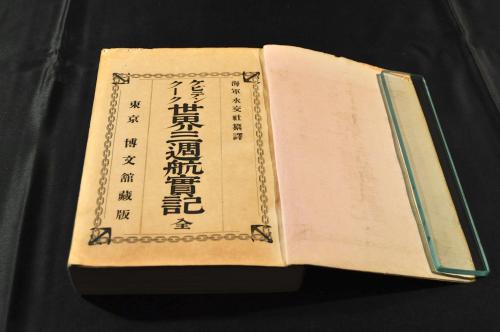 海軍水交社纂譯
ケピテン
クーク
世界三週航實記 全
東京 博文館藏版